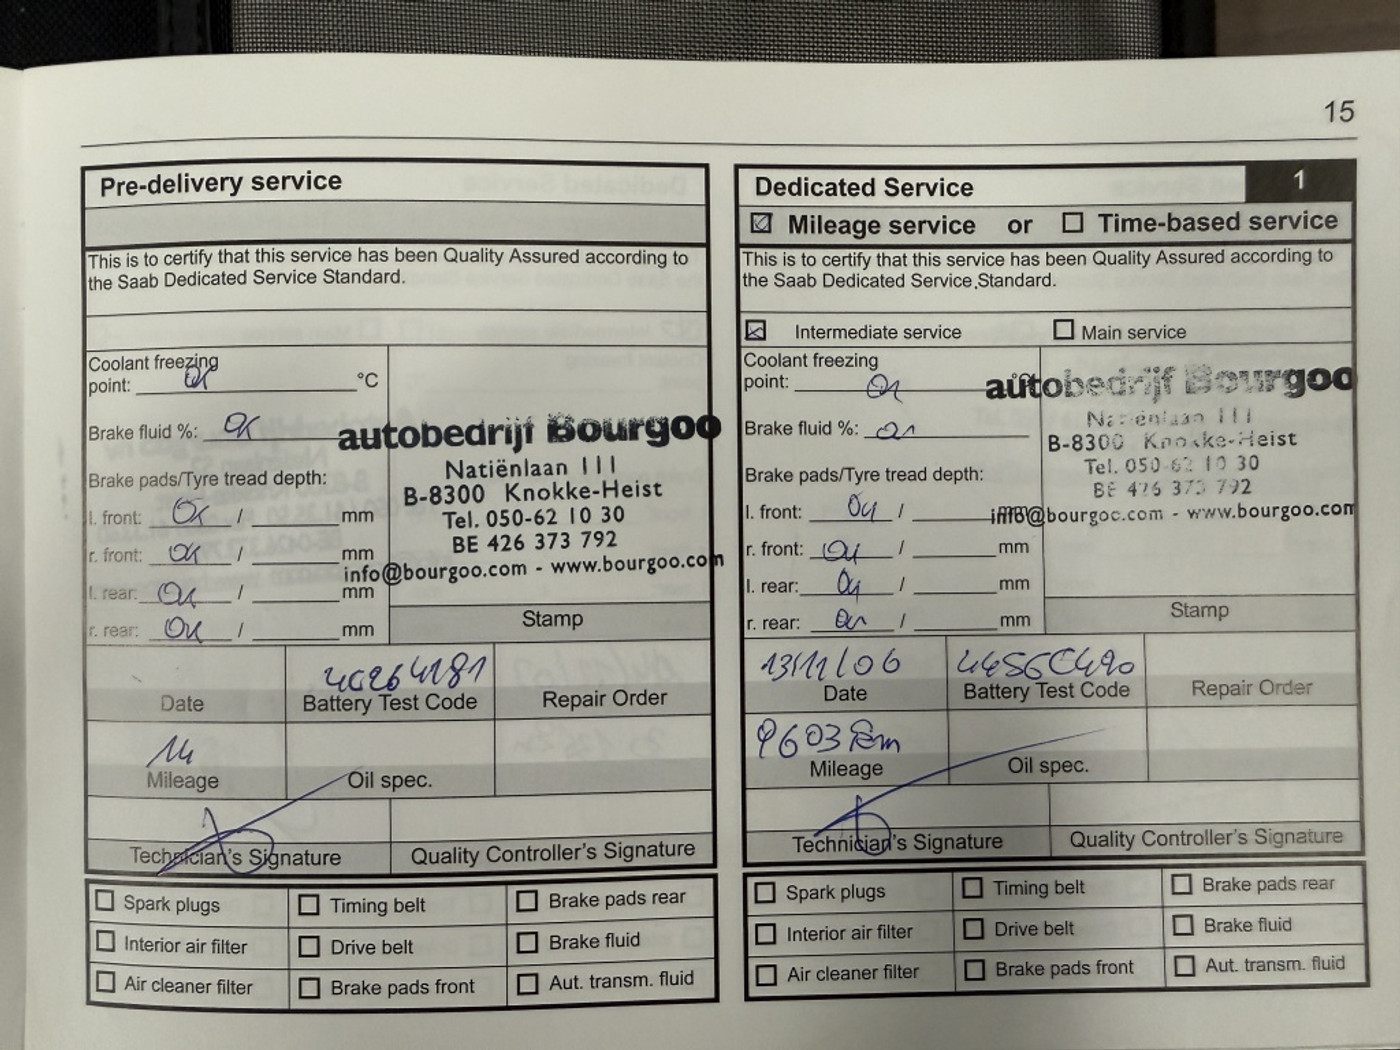 15
Pre-delivery service
This is to certify that this service has been Quality Assured according to
the Saab Dedicated Service Standard.
Coolant freezing
point: ok °C
Brake fluid %: ok
autobedrijf Bourgoo
Natiënlaan 111
B-8300 Knokke-Heist
Tel. 050-62 10 30
BE 426 373 792
info@bourgoo.com - www.bourgoo.com
Stamp
Brake pads/Tyre tread depth:
l. front: ok / mm
r. front: ok / mm
l. rear: ok / mm
r. rear: ok / mm
Date
Battery Test Code
Repair Order
14
Mileage
Oil spec.
Technician's Signature
Quality Controller's Signature
Spark plugs
Timing belt
Brake pads rear
Interior air filter
Drive belt
Brake fluid
Air cleaner filter
Brake pads front
Aut. transm. fluid
Dedicated Service 1
Mileage service or Time-based service
This is to certify that this service has been Quality Assured according to
the Saab Dedicated Service Standard.
Intermediate service
Main service
Coolant freezing
point: ok
Brake fluid %: ok
autobedrijf Bourgoo
Natiënlaan 111
B-8300 Knokke-Heist
Tel. 050-62 10 30
BE 426 373 792
info@bourgoo.com - www.bourgoo.com
Stamp
Brake pads/Tyre tread depth:
l. front: ok /
r. front: ok / mm
l. rear: ok / mm
r. rear: ok / mm
13/11/06
Date
Battery Test Code
Repair Order
9603 km
Mileage
Oil spec.
Technician's Signature
Quality Controller's Signature
Spark plugs
Timing belt
Brake pads rear
Interior air filter
Drive belt
Brake fluid
Air cleaner filter
Brake pads front
Aut. transm. fluid